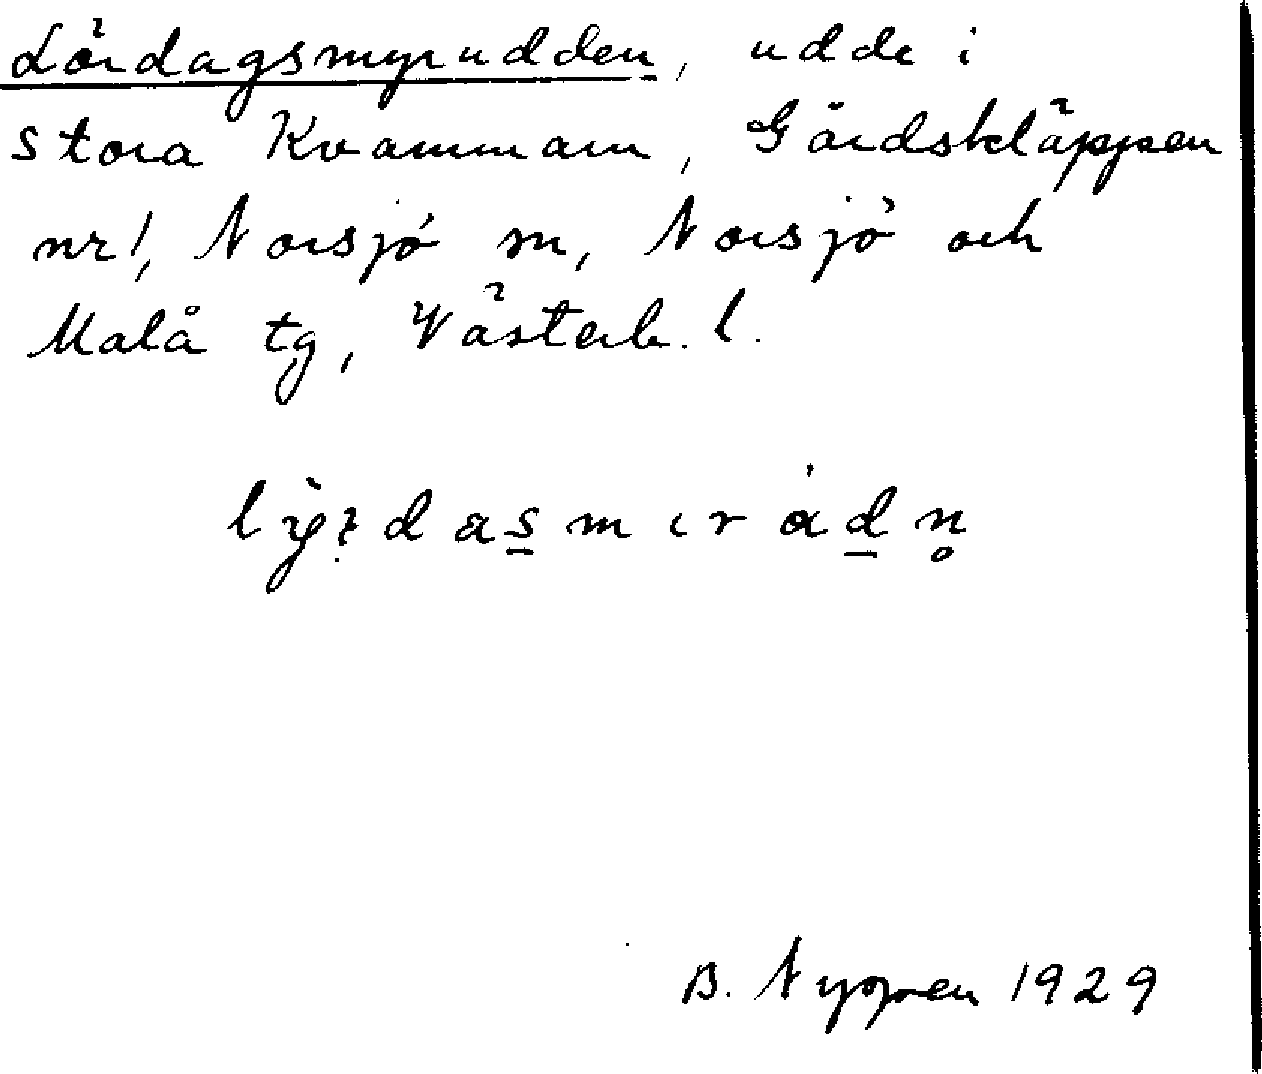 Lördagsmyrudden, udde i
Stora Kvammarn, Gärdskläppen
nr 1, Norsjö sn, Norsjö och
Malå tg, Västerb. l.
B. Nyppen 1929